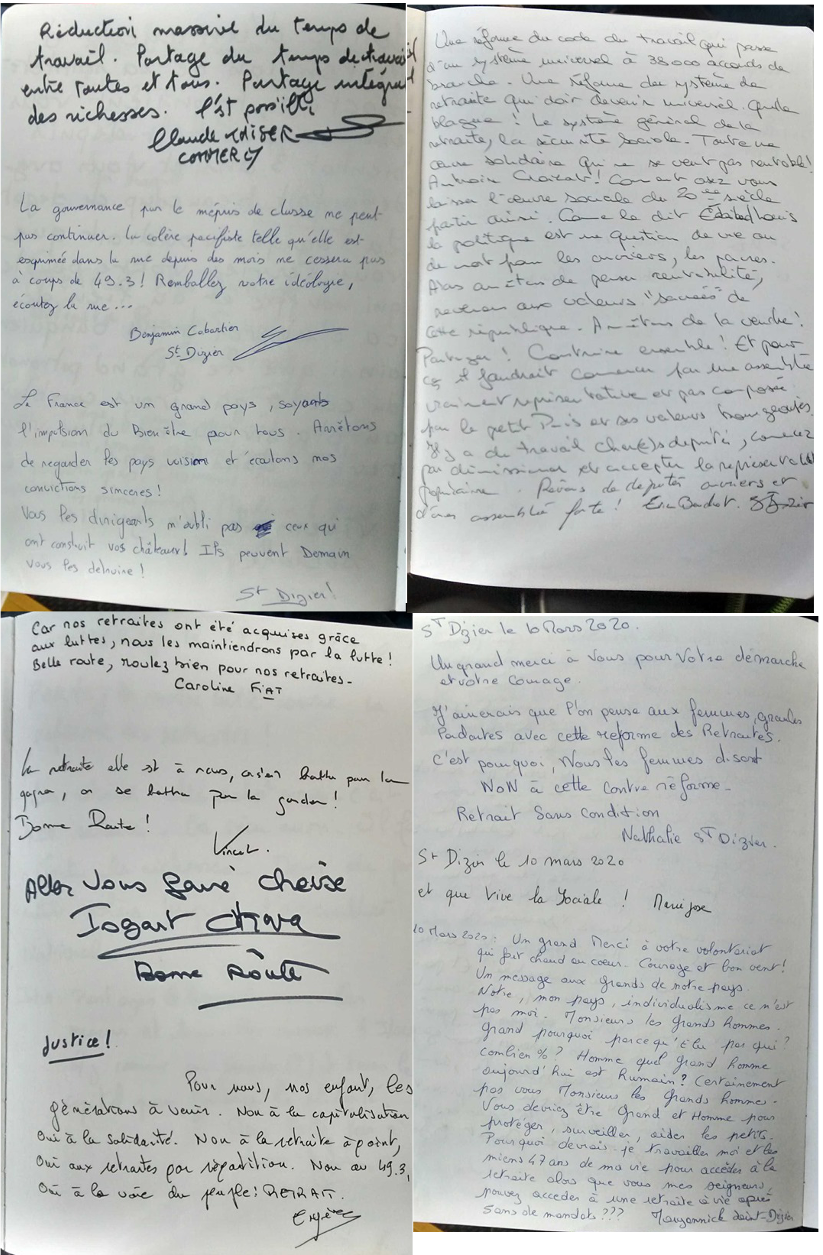 Réduction massive du temps de
travail. Partage du temps de travail
entre toutes et tous. Partage intégral
des richesses. C'est possible
Claude KAISER
COMMERCY
La gouvernance par le mépris de classe ne peut
pas continuer. La colère pacifiste telle qu'elle est
exprimée dans la rue depuis des mois ne cessera pas
à coups de 49.3! Remballez votre idéologie,
écoutez la rue...
Benjamin
St Dizier
La France est un grand pays, soyons
l'impulsion du Bien être pour tous. Arrêtons
de regarder les pays voisins et écoutons nos
convictions sincères!
Vous les dirigeants n'oubli pas ceux qui
ont construit vos châteaux! Ils peuvent Demain
vous les détruire!
St Dizier!
Une réforme du code du travail qui passe
d'un système universel à 38000 accords de
branche. Une réforme du système de
retraite qui doit devenir universel. Quelle
blague! Le système général de la
retraite, la sécurité sociale. Toute une
œuvre solidaire qui ne se veut pas rentable!
Ambroise Croizat! Comment osez vous
laisser l'œuvre sociale du 20ème siècle
partir ainsi. Comme le dit Edouard Louis
la politique est une question de vie ou
de mort pour les ouvriers, les pauvres.
Alors arrêtons de penser rentabilité,
revenons aux valeurs "sacrées" de
cette république. Arrêtons de la vendre!
Partageons! Construire ensemble! Et pour
ça il faudrait commencer par une assemblée
vraiment représentative et pas composée
par le petit Paris et ses valeurs bourgeoises.
Il y a du travail cher(e)s députés, commencez
par démissionner et accepter la représentativité
populaire. Rêvons de députés ouvriers et
d'une assemblée forte! Eric St Dizier
Car nos retraites ont été acquises grâce
aux luttes, nous les maintiendrons par la lutte!
Belle route, roulez bien pour nos retraites-
Caroline FIAT
La retraite elle est à nous, on s'est battu pour la
gagner, on se battra pour la garder!
Bonne Route!
Vincent.
Bonne Route
Justice!
Pour nous, nos enfant, les
générations à venir. Non à la capitalisation
Oui à la solidarité. Non à la retraite à point,
Oui aux retraites par répartition. Non au 49.3,
Oui à la voix du peuple: RETRAIT.
St Dizier le 10 Mars 2020.
Un grand merci à Vous pour Votre démarche
et votre Courage.
J'aimerais que l'on pense aux femmes, grandes
Perdantes avec cette reforme des Retraites.
C'est pourquoi, Nous les femmes disont
NON à cette Contre réforme-
Retrait Sans Condition
Nathalie ST Dizier.
St Dizier le 10 mars 2020
et que Vive la Sociale!
10 Mars 2020: Un grand Merci à votre volontariat
qui fait chaud au coeur- Courage et bon vent!
Un message aux Grands de notre pays.
Notre, mon pays, individualisme ce n'est
pas moi. Monsieurs les Grands hommes-
Grand pourquoi parce qu'Elu par qui?
combien %? Homme quel Grand homme
aujourd'hui est humain? Certainement
pas vous Monsieurs les Grands hommes-
Vous devriez être Grand et Homme pour
protéger, surveiller, aider les petits.
Pourquoi devrais-je travailler moi et les
miens 47 ans de ma vie pour accéder à la
retraite alors que vous mes seigneurs,
pouvez accéder à une retraite à vie après
5ans de mandats??? Saint-Dizier